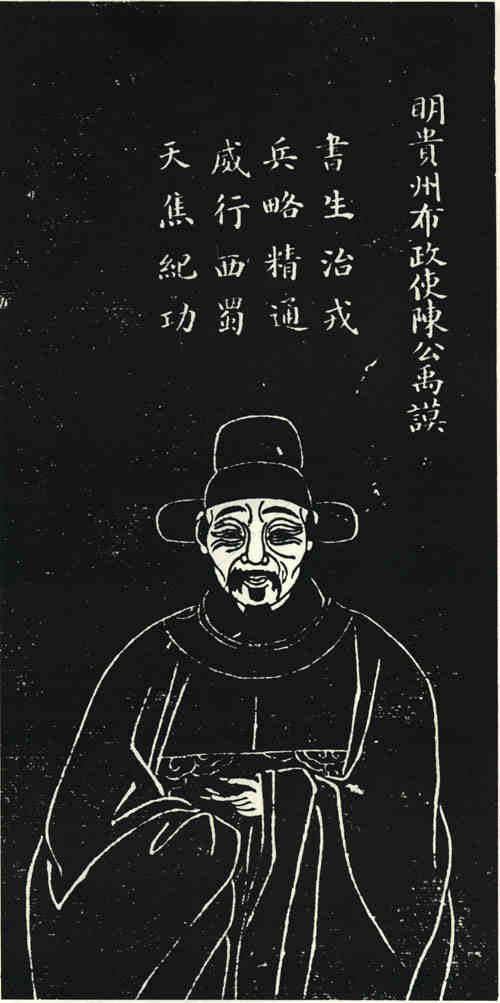 明貴州布政使陳公禹謨
書生治戎
兵略精通
威行西蜀
天焦紀功